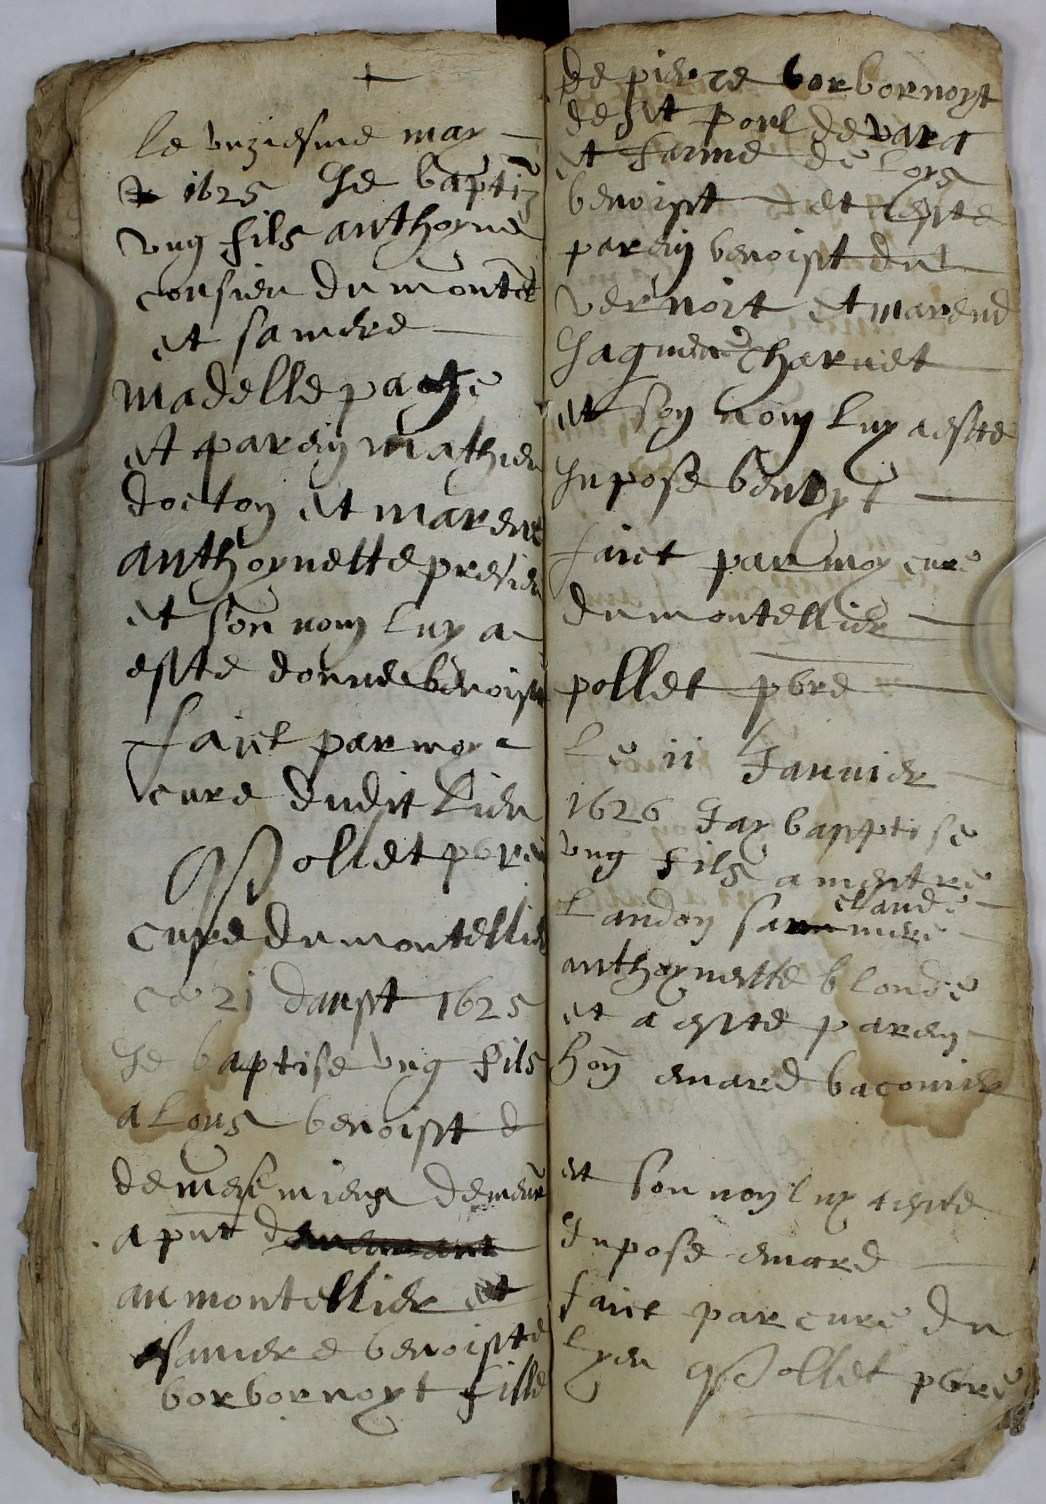 le unziesme may
1625 Je baptiz
ung fils anthoyne
cousieu du montel
et sa mere
madelle page
et parein mathieu
docton et marene
anthoynette previeu
et son nom luy a
esste donne benoist
faict par moy
cure dudit lieu
Pollet pbre
cure du montellier
ce 21 daust 1625
Je baptise ung fils
a Loys benoisst d
de mesemieux demeur
a pnt
au montellier et
sa mere benoiste
borbornoyt fille
de pierre borbornoyt
de st porl de vara
et fame de Loys
benoisst et esste
parein benoisst du
vernoit et marene
Jaqueme charvet
et son nom luy a esste
Inpose benoyt
faict par moy cure
du montellier
pollet pbre
Le 11 Januier
1626 Jay bapptise
ung fils a mestre
claude
Landon sa mere
anthoynestte blonde
et a esste parein
hon emard baconier
et son nom luy a esste
Inpose emard
faict par cure du
lyeu Pollet pbre